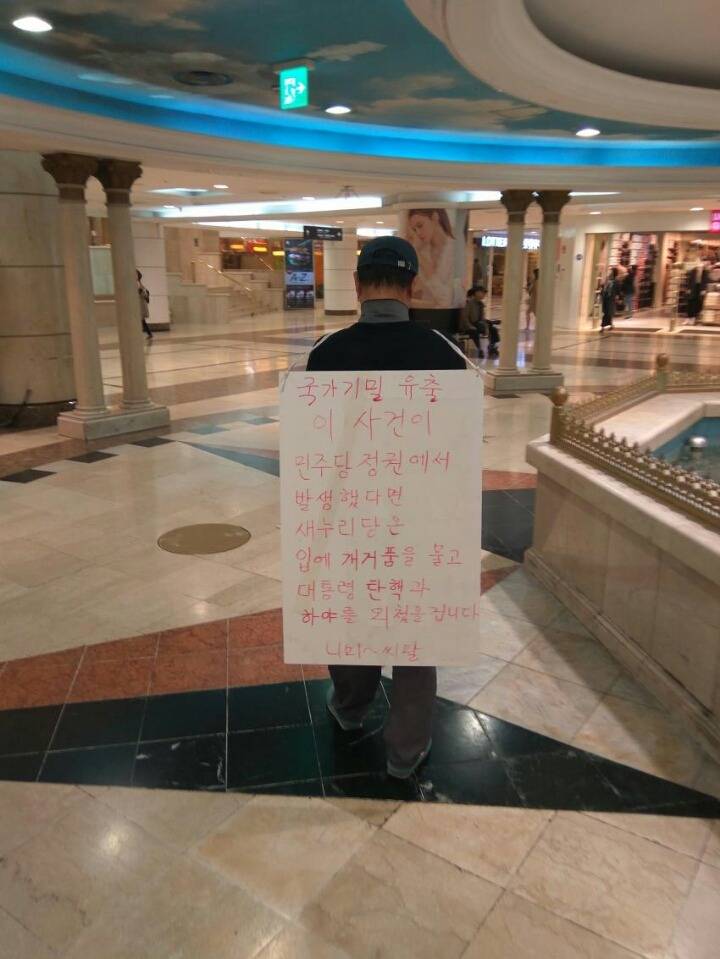 국가기밀 유출
이 사건이
민주당정권에서
발생했다면
새누리당은
입에 개거품을 물고
대통령 탄핵과
하야를 외쳤을겁니다
니미~씨팔